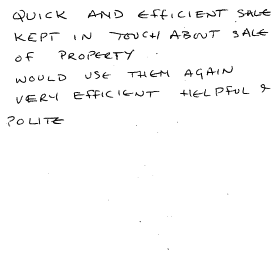 QUICK AND EFFICIENT SALE
KEPT IN TOUCH ABOUT SALE
OF PROPERTY.
WOULD USE THEM AGAIN
VERY EFFICIENT HELPFUL &
POLITE